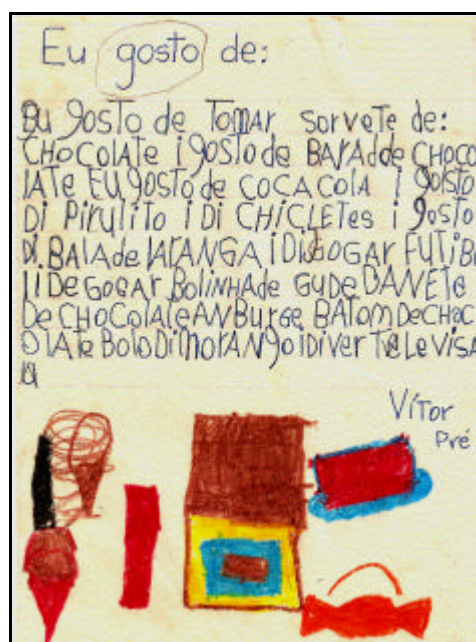 Eu gosto de:
Eu gosto de TOMAR sorvete de:
CHOCOLATE i gosto de BARAdde CHOCO
lATe EU gosto de COCA COLA i gosto
Di Pirulito i Di CHICLETes i gosto
Di BALA de lARANGA i Di GOGAR FUTiBu
li De GOGAR Bolinha de GUDe DANETe
De CHOCOlATe ANBurge BATOM De CHOC
OlATe Bolo Di morANgo i Di ver TeleVisA
u
Vítor
Pré